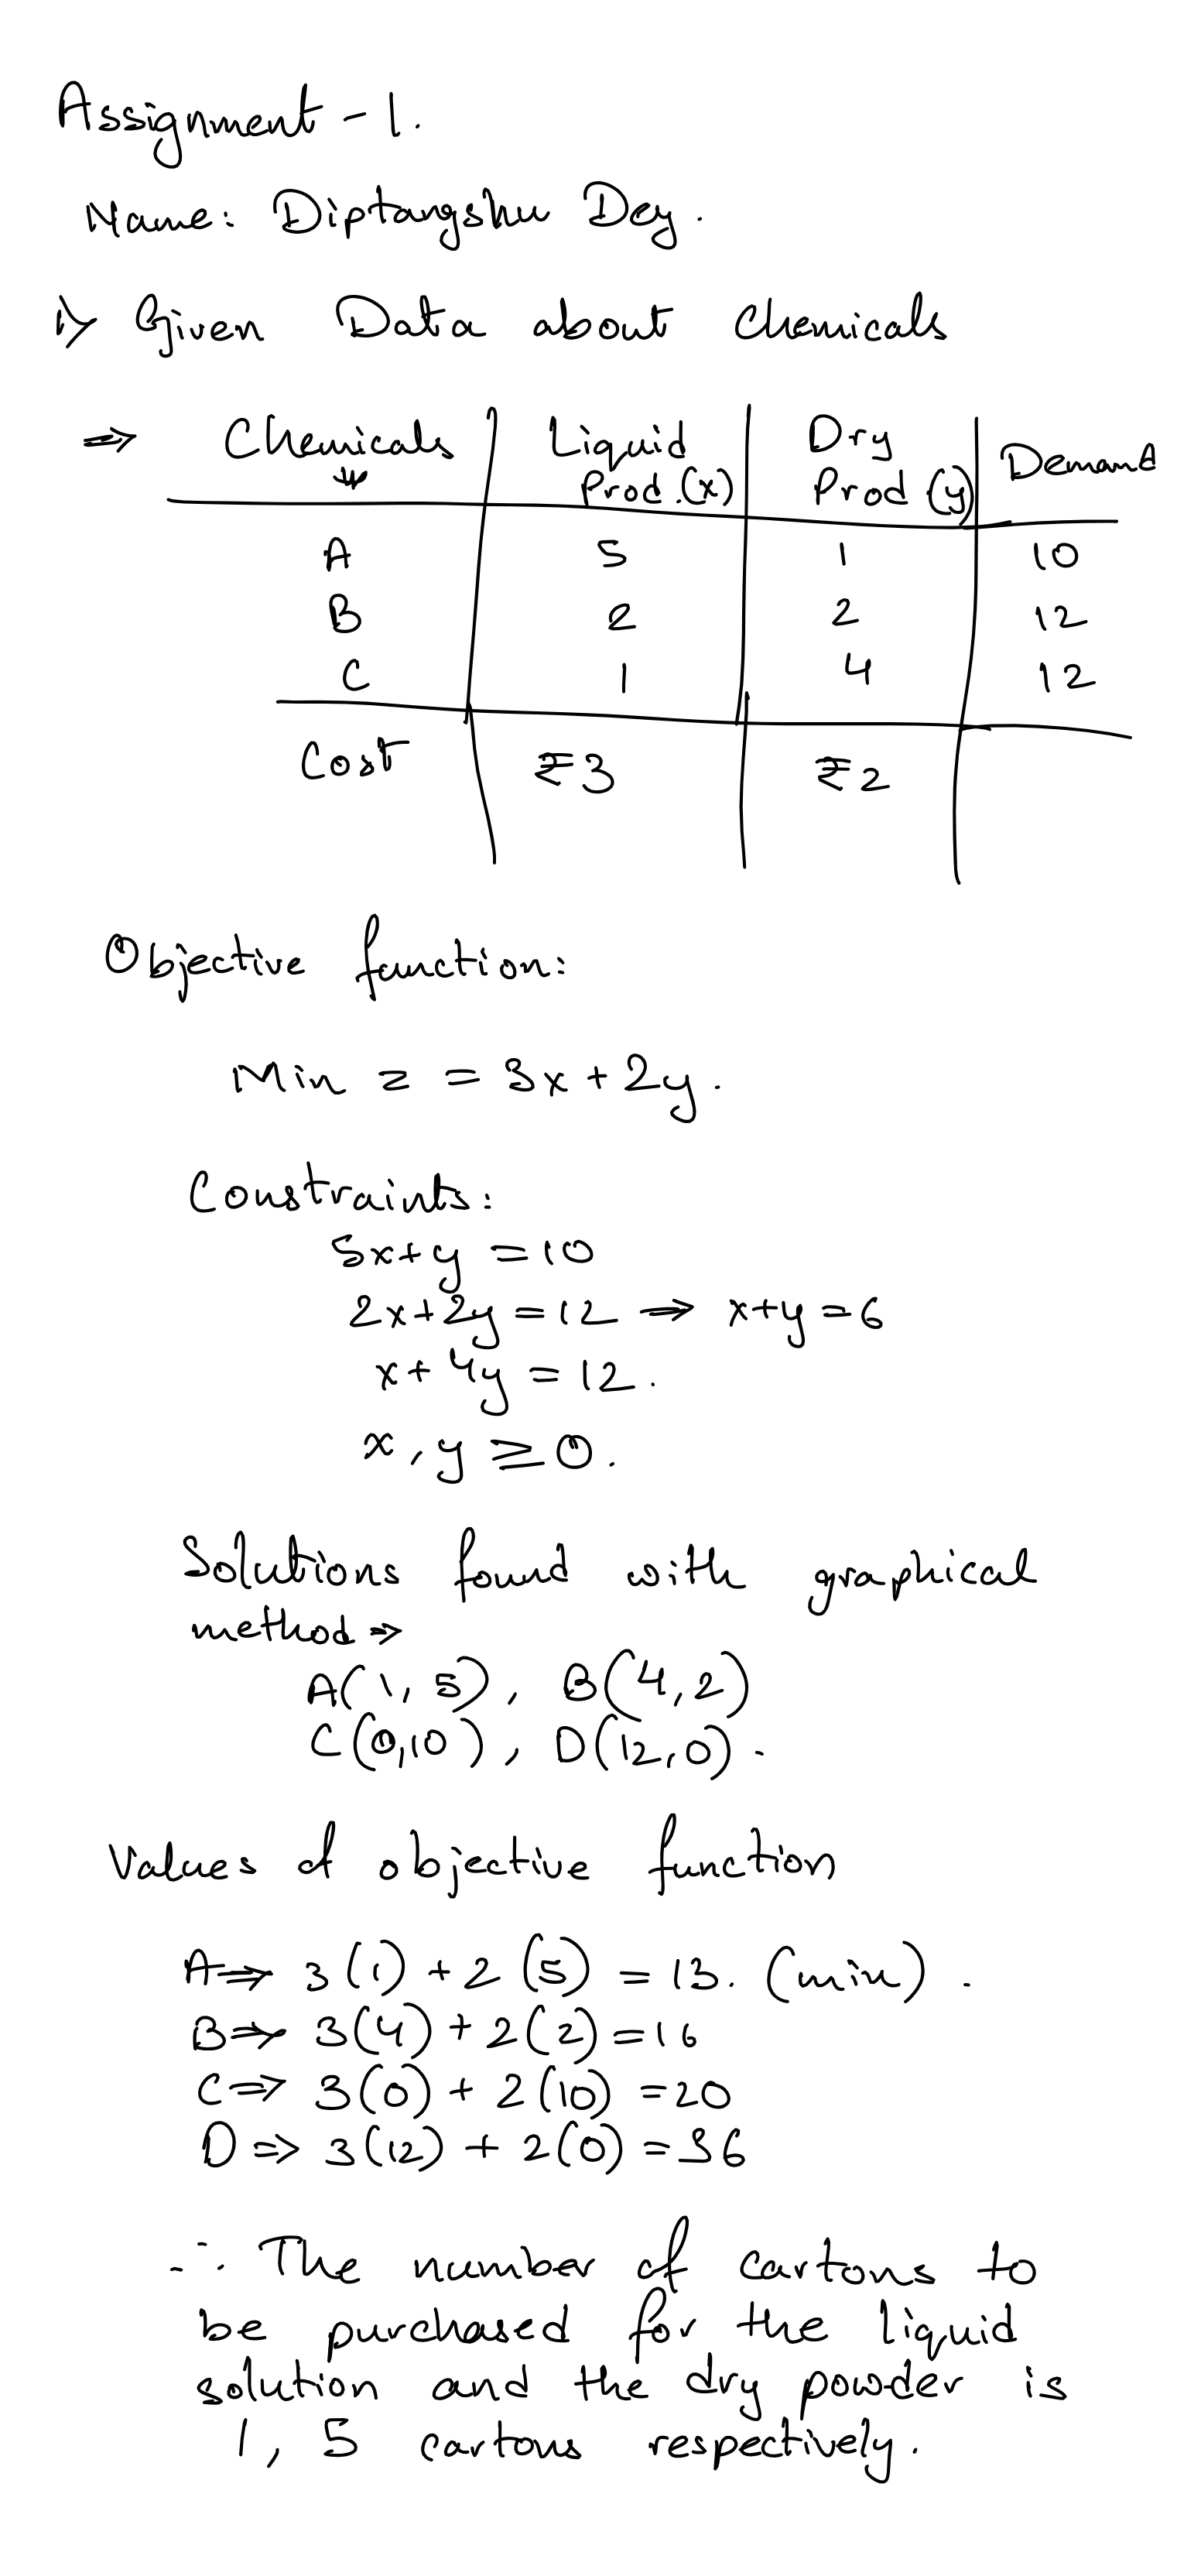 Assignment - 1.
Name: Diptangshu Dey.
1> Given Data about Chemicals
⇒ Chemicals ↓ Liquid Prod.(x) Dry Prod (y) Demand
A 5 1 10
B 2 2 12
C 1 4 12
Cost ₹3 ₹2
Objective function:
Min z = 3x + 2y.
Constraints:
5x+y = 10
2x+2y = 12 → x+y = 6
x + 4y = 12.
x, y ≥ 0.
Solutions found with graphical
method ⇒
A(1, 5), B(4, 2)
C(0,10), D(12, 0).
Values of objective function
A ⇒ 3(1) + 2(5) = 13. (min).
B ⇒ 3(4) + 2(2) = 16
C ⇒ 3(0) + 2(10) = 20
D ⇒ 3(12) + 2(0) = 36
∴ The number of cartons to
be purchased for the liquid
solution and the dry powder is
1, 5 cartons respectively.